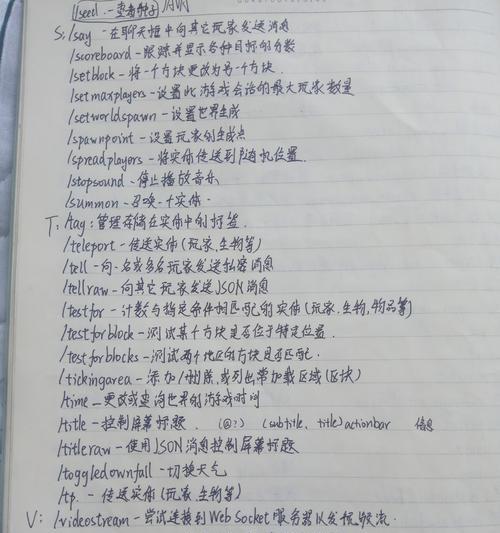 /seed - 查看种子
S: /say - 在聊天框中向其它玩家发送消息
/scoreboard - 跟踪并显示各种目标的分数
/setblock - 将一个方块更改为另一个方块.
/setmaxplayers - 设置此游戏会话的最大玩家数量
/setworldspawn - 设置世界生成
/spawnpoint - 设置玩家的生成点
/spreadplayers - 将实体传送到随机位置.
/stopsound - 停止播放音乐
/summon - 召唤一个实体.
T: /tag: 管理存储在实体中的标签
/teleport - 传送实体(玩家.生物等)
/tell - 向一名或多名玩家发送私密消息
/tellraw - 向其它玩家发送JSON消息
/testfor - 计数与指定条件相匹配的实体(玩家,生物,物品等)
/testforblock - 测试某个方块是否位于特定位置.
/testforblocks - 测试两个地区的方块是否匹配.
/tickingarea - 添加/删除,或列出常加载区域(区块)
/time - 更改或查询世界的游戏时间
/title - 控制屏幕标题. (@?) (subtitle, title) actionbar 信息
/titleraw - 使用JSON消息控制屏幕标题
/toggledownfall - 切换天气
/tp. - 传送实体(玩家.生物等)
V: /videostream - 尝试连接到WebSocket服务器以发视频流.